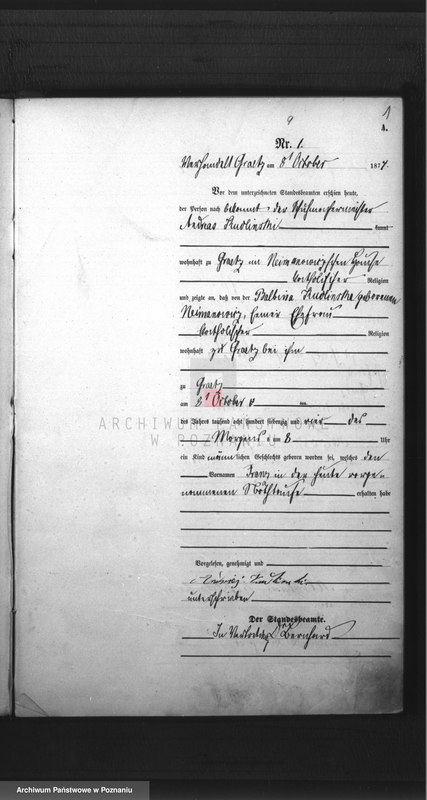 9
1
A.
Nr. 1.
Verhandelt Graetz am 8t October 1874.
Vor dem unterzeichneten Standesbeamten erschien heute,
der Person nach bekannt, der Schuhmachermeister
Andreas kannt
wohnhaft zu Graetz im Neimanowiczschen Hause
katholischer Religion
und zeigte an, daß von der Balbina geborenen
Neimanowicz, seiner Ehefrau
katholischer Religion
wohnhaft zu Graetz bei ihm
zu Graetz
am 8t October
des Jahres tausend acht hundert siebenzig und vier des
Morgens um 8 Uhr
ein Kind männlichen Geschlechts geboren worden sei, welches den
Vornamen Franz in der heute vorge-
nommenen Nothtaufe erhalten habe
Vorgelesen, genehmigt und
unterschrieben
Der Standesbeamte.
In Vertretung Bernhard
ARCHIWUM PAŃSTWOWE
W POZNANIU
Archiwum Państwowe w Poznaniu